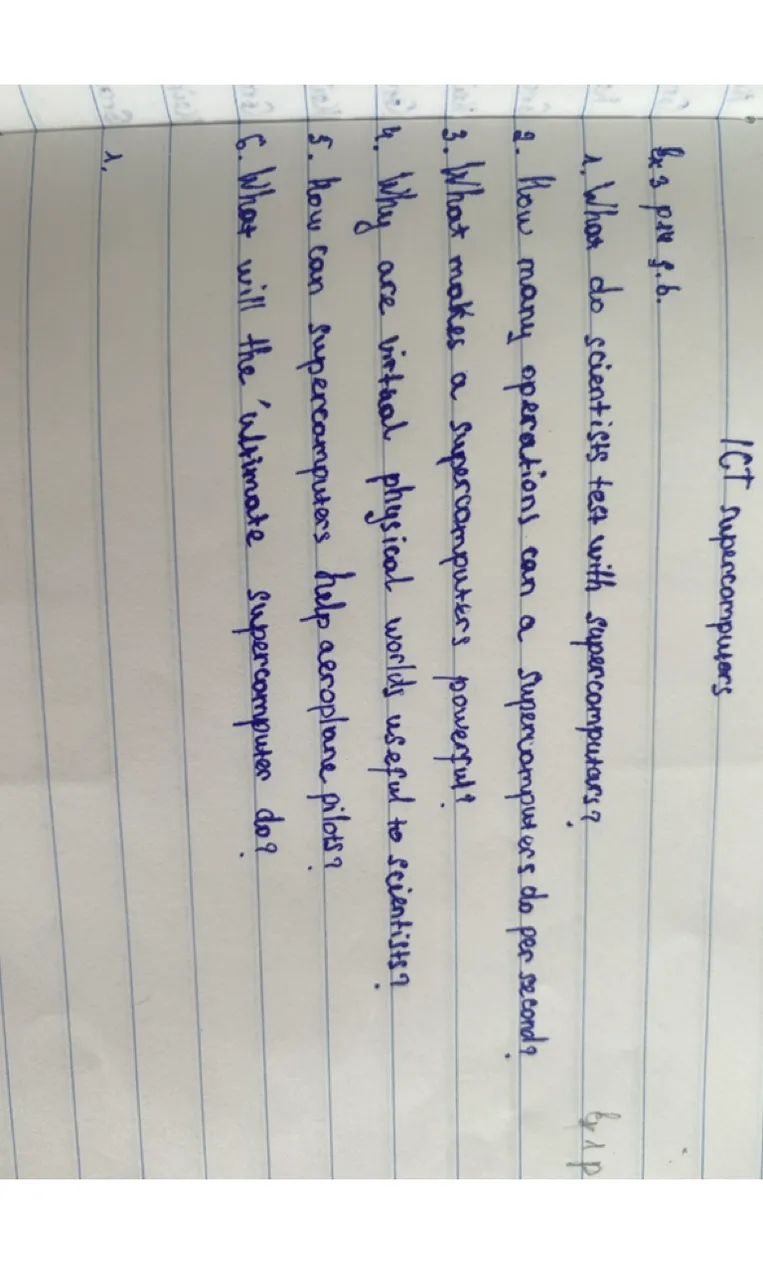 ICT supercomputers
Ex 3 p14 s.b.
1. What do scientists test with supercomputars?
2. How many operations can a supercomputers do per second?
3. What makes a supercomputers powerful?
4. Why are virtual physical worlds useful to scientists?
5. How can supercomputers help aeroplane pilots?
6. What will the 'ultimate supercomputer do?
1.